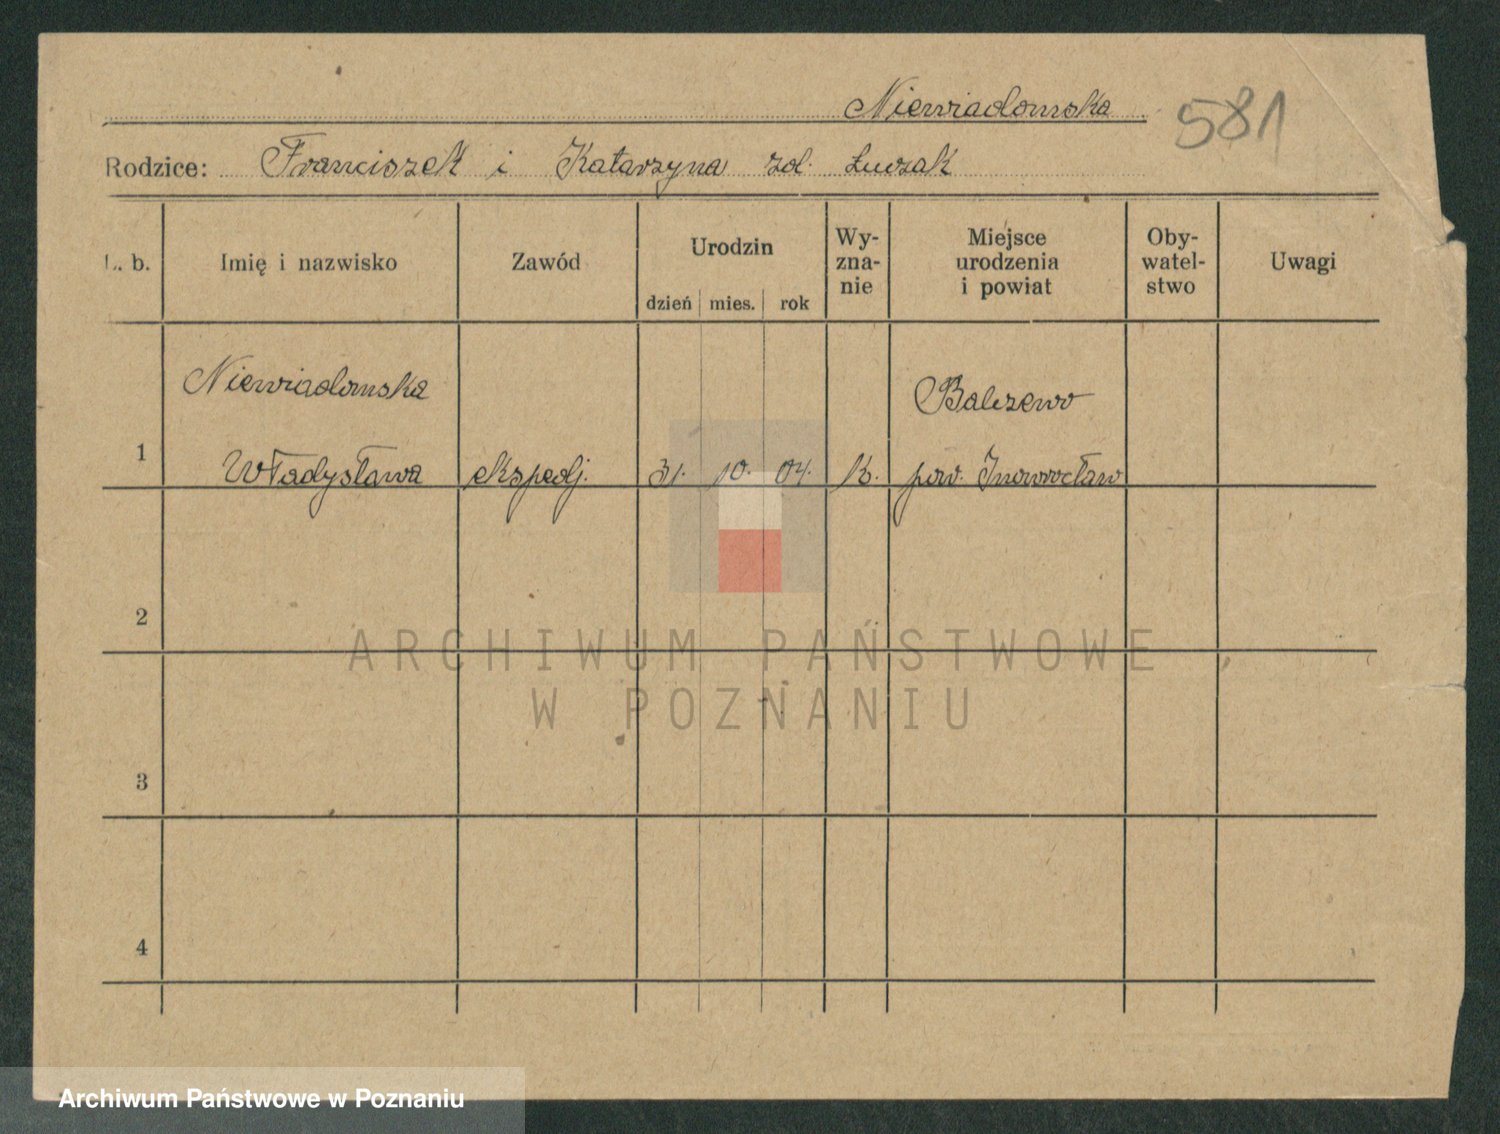 Niewiadomska
581
Rodzice: Franciszek i Katarzyna zd. Łuczak
L. b.
Imię i nazwisko
Zawód
Urodzin
dzień mies. rok
Wy-
zna-
nie
Miejsce
urodzenia
i powiat
Oby-
watel-
stwo
Uwagi
Niewiadomska
Balczewo
1 Władysława ekspedj. 31. 10. 04. k. pow. Inowrocław
2
ARCHIWUM PAŃSTWOWE
W POZNANIU
3
4
Archiwum Państwowe w Poznaniu